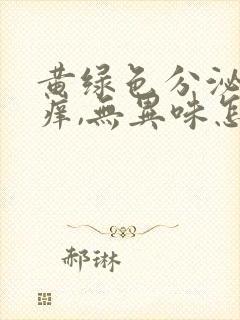 黄绿色分泌
痒,無異味怎
郝琳